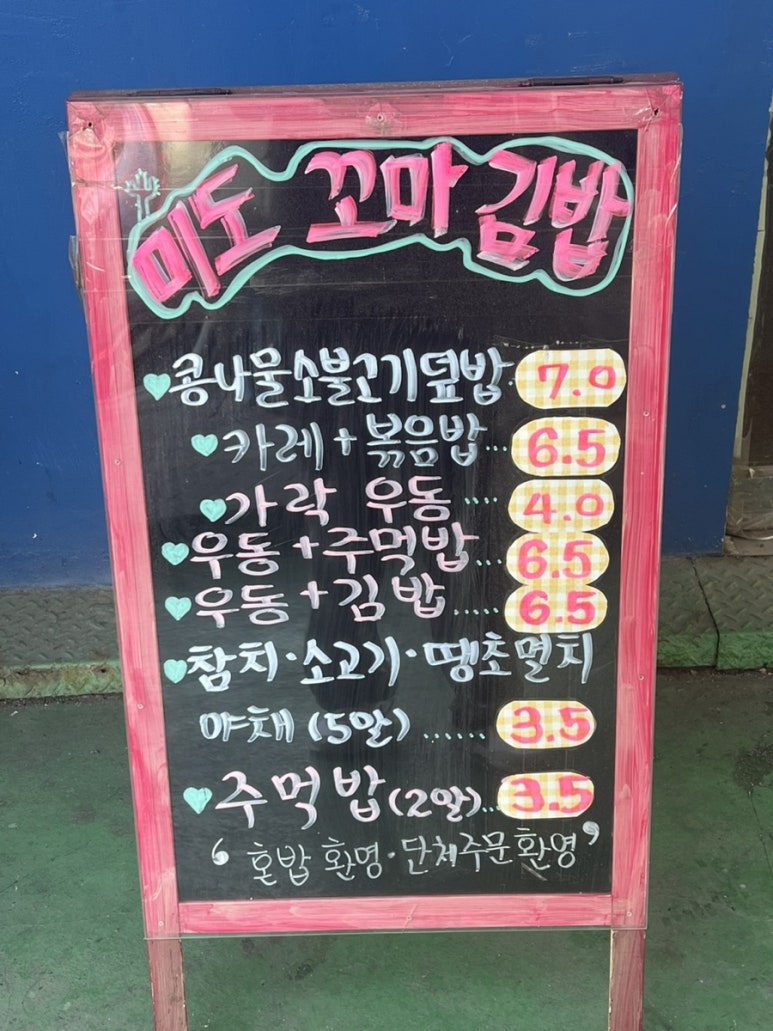 미도 꼬마 김밥
콩나물소불고기덮밥. 7.0
카레+볶음밥... 6.5
가락 우동 .... 4.0
우동+주먹밥... 6.5
우동+김밥..... 6.5
참치·소고기·땡초멸치
야채 (5알) ...... 3.5
주먹밥 (2알)... 3.5
‘ 혼밥 환영·단체주문환영 ’